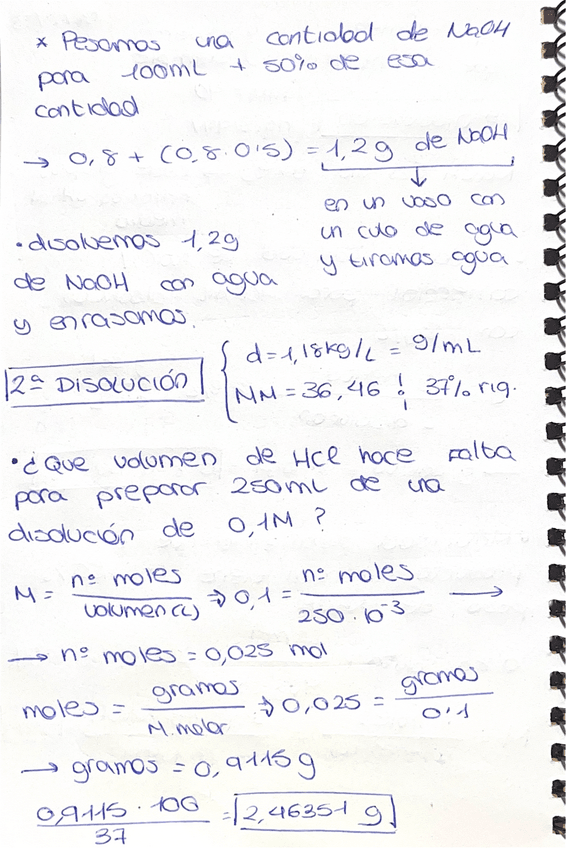 * Pesamos una cantidad de NaOH
para 100mL + 50% de esa
cantidad
→ 0,8 + (0,8 · 0'5) = 1,2 g de NaOH
↓
en un vaso con
un culo de agua
y tiramos agua
• disolvemos 1,2g
de NaOH con agua
y enrasamos.
2ª DISOLUCIÓN
d = 1,18 kg/L = g/mL
MM = 36,46 ! 37% riq.
• ¿Que volumen de HCl hace falta
para preparar 250mL de una
disolución de 0,1M ?
M = nº moles / volumen (L) → 0,1 = nº moles / 250 · 10⁻³ →
→ nº moles = 0,025 mol
moles = gramos / M. molar → 0,025 = gramos / 0'1
→ gramos = 0,9115 g
0,9115 · 100 / 37 = 2,46351 g